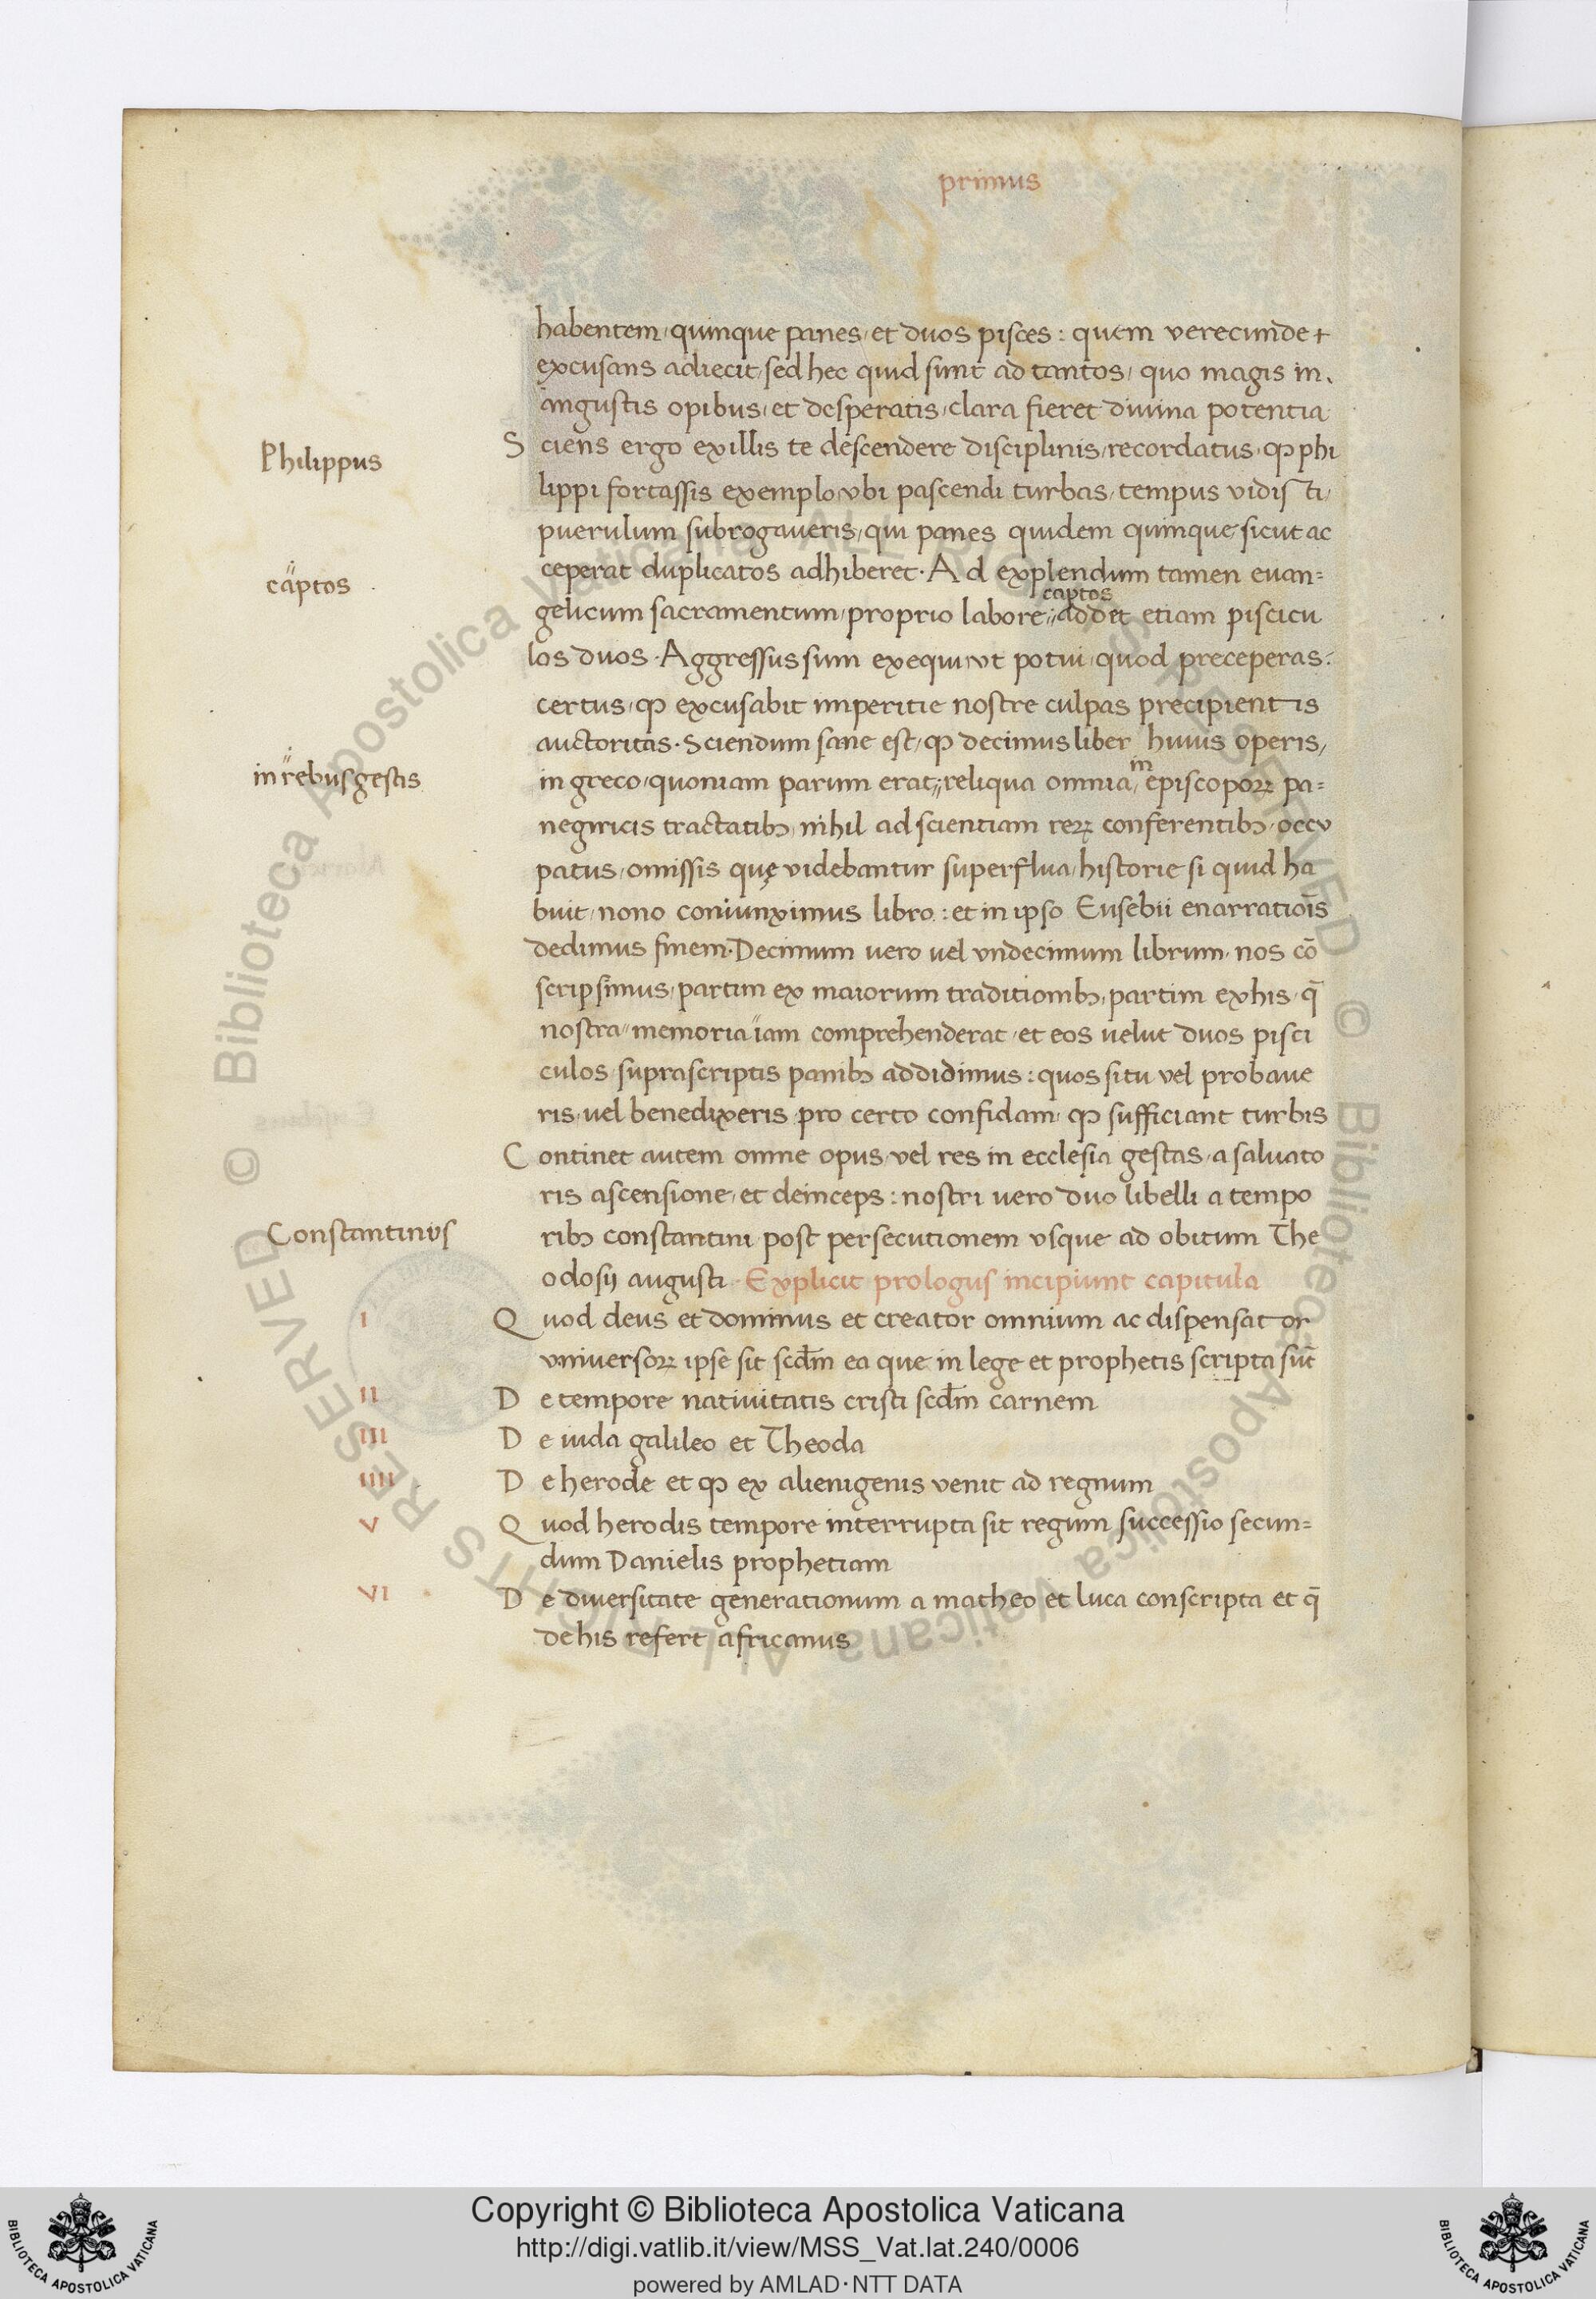 primus
habentem, quinque panes, et duos pisces: quem verecunde +
excusans adiecit, sed hec quid sunt ad tantos, quo magis in,
angustis opibus, et desperatis, clara fieret divina potentia
Philippus
Sciens ergo ex illis te descendere disciplinis, recordatus, qꝫ phi
lippi fortassis exemplo, vbi pascendi turbas, tempus vidisti,
puerulum subrogaueris, qui panes quidem quinque sicut ac
captos
ceperat duplicatos adhiberet. Ad explendum tamen euan=
captos
gelicum sacramentum, proprio labore, addet etiam piscicu
los duos. Aggressus sum exequi, vt potui, quod preceperas:
certus, qꝫ excusabit imperitie nostre culpas precipientis
auctoritas. Sciendum sane est, qꝫ decimus liber huius operis,
in rebus gestis
in
in greco, quoniam parum erat, reliqua omnia, episcoporꝝ pa=
negiricis tractatibꝫ, nihil ad scientiam rerꝝ conferentibꝫ, occu
patus, omissis quę videbantur superflua, historie si quid ha
buit, nono coniunximus libro: et in ipso Eusebii enarratiōis
dedimus finem. Decimum vero vel vndecimum librum, nos cō
scripsimus, partim ex maiorum traditionibꝫ, partim ex his, q̄
nostra memoria iam comprehenderat, et eos velut duos pisci
culos suprascriptis panibꝫ addidimus: quos si tu vel probaue
ris, vel benedixeris, pro certo confidam, qꝫ sufficiant turbis
Continet autem omne opus, vel res in ecclesia gestas, a saluato
ris ascensione, et deinceps: nostri vero duo libelli a tempo
Constantinus
ribꝫ constantini post persecutionem vsque ad obitum The
odosij augusti. Explicit prologus incipiunt capitula
I Quod deus et dominus et creator omnium ac dispensator
vniuersorꝝ ipse sit scdm̄ ea que in lege et prophetis scripta sūt
II De tempore natiuitatis cristi scdm̄ carnem
III De iuda galileo et Theoda
IIII De herode et qꝫ ex alienigenis venit ad regnum
V Quod herodis tempore interrupta sit regum successio secun=
dum Danielis prophetiam
VI De diuersitate generationum a matheo et luca conscripta et q̄
de his refert africanus
© Biblioteca Apostolica Vaticana ALL RIGHTS RESERVED © Biblioteca Apostolica Vaticana ALL RIGHTS RESERVED
Copyright © Biblioteca Apostolica Vaticana
http://digi.vatlib.it/view/MSS_Vat.lat.240/0006
powered by AMLAD·NTT DATA
BIBLIOTECA APOSTOLICA VATICANA
BIBLIOTECA APOSTOLICA VATICANA